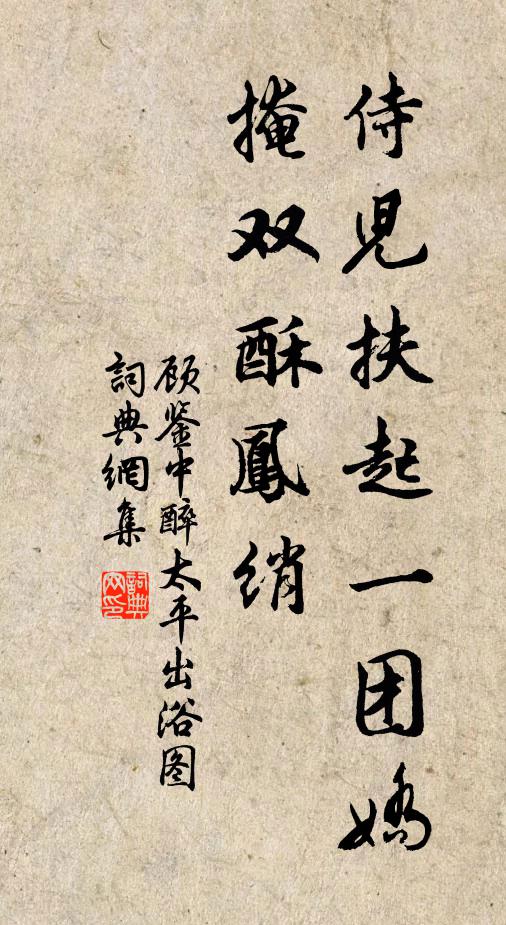 侍児扶起一团嬌
掩双酥鳳绡
顾鉴中醉太平出浴图
詞典網集
詞典
网印